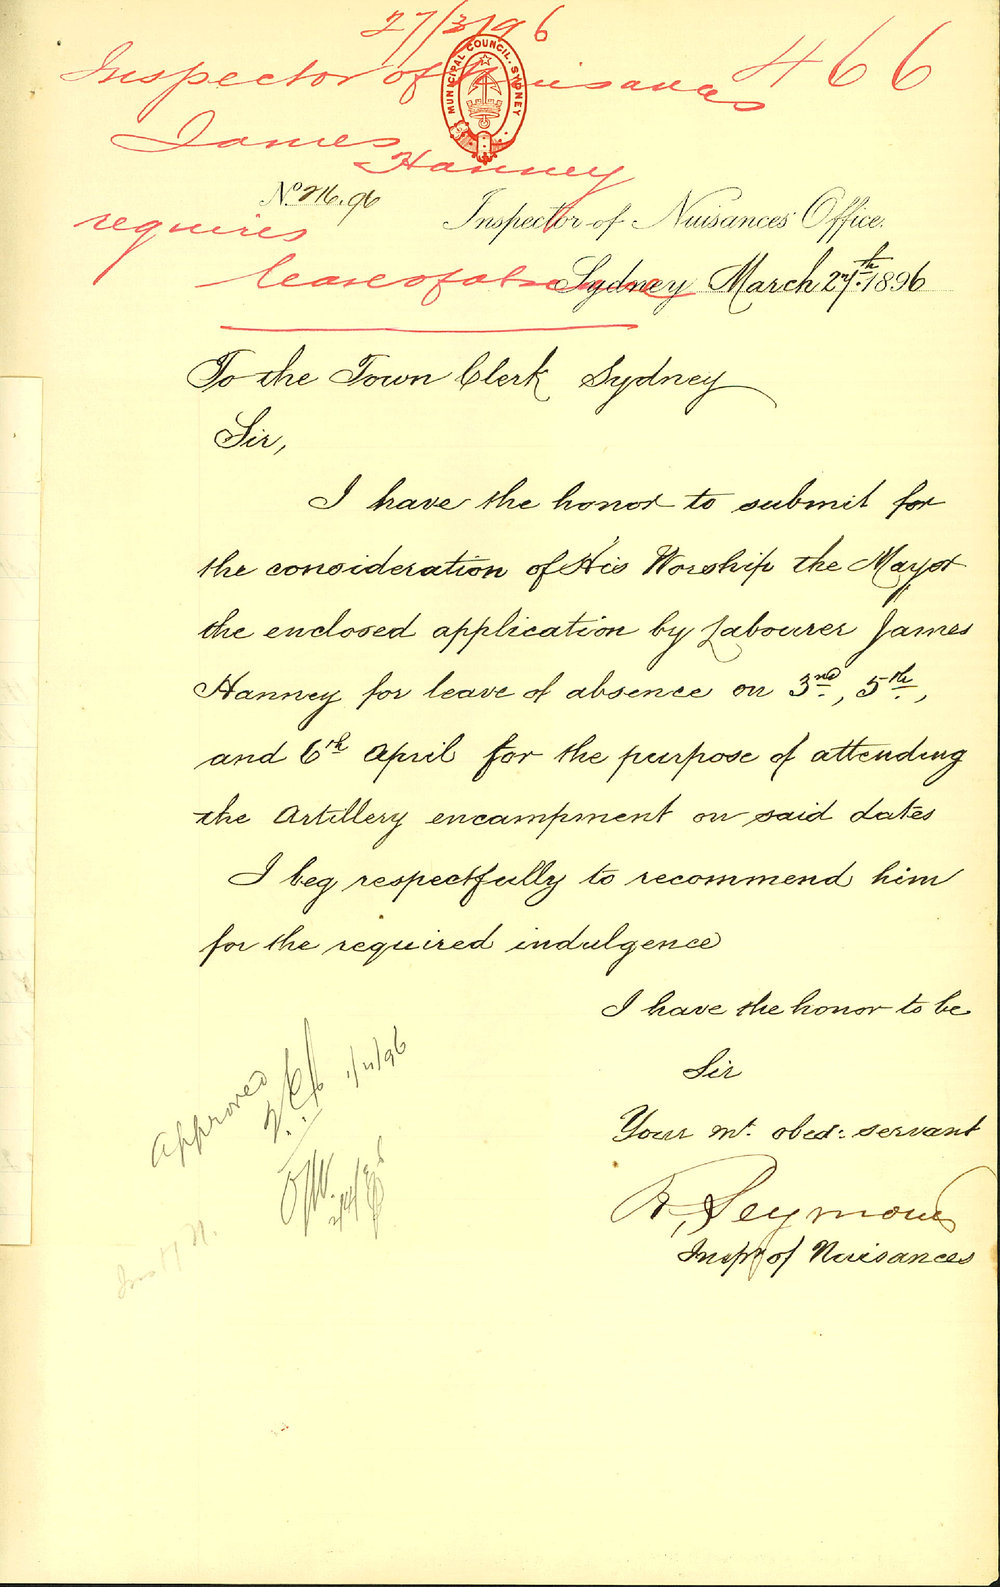 27/3/96
466
Inspector of Nuisances
MUNICIPAL COUNCIL. SYDNEY
James
Hanney
requires
leave of absence
No 216.96
Inspector of Nuisances' Office.
Sydney March 27th. 1896
To the Town Clerk Sydney
Sir,
I have the honor to submit for
the consideration of His Worship the Mayor
the enclosed application by Labourer James
Hanney for leave of absence on 3rd, 5th,
and 6th April for the purpose of attending
the Artillery encampment on said dates
I beg respectfully to recommend him
for the required indulgence
I have the honor to be
Sir
Your mt. obed: servant
R, Seymour
Inspr of Nuisances
Approved
1/4/96